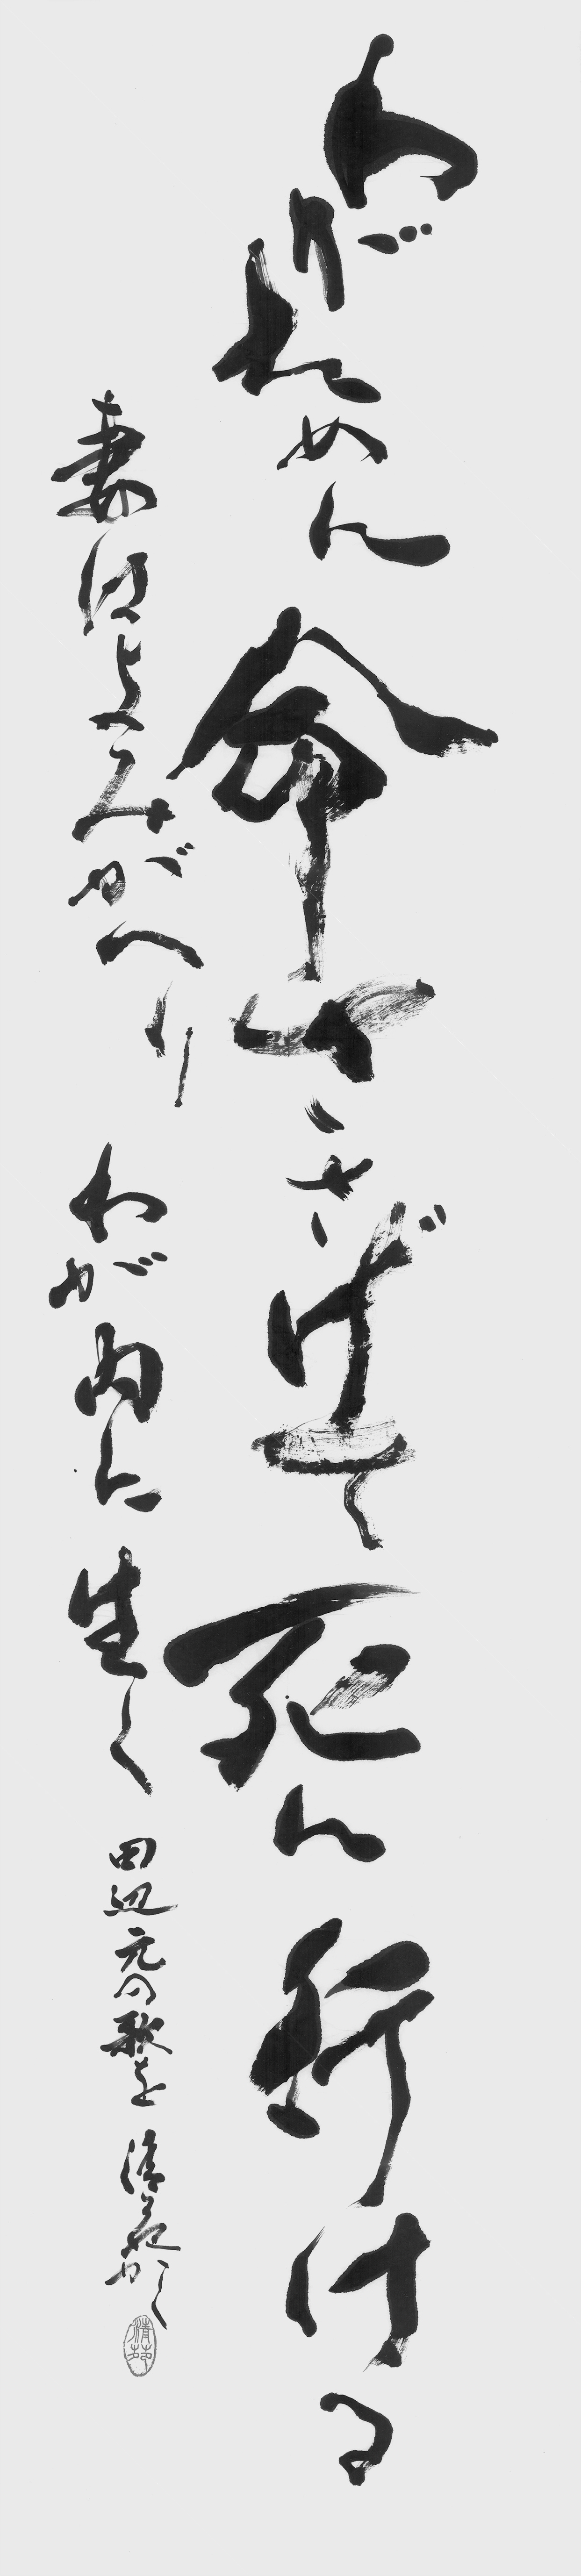 わがために命ささげて死に行ける
妻はよみがへりわが内に生く
田辺元の歌を 清苑かく
清苑